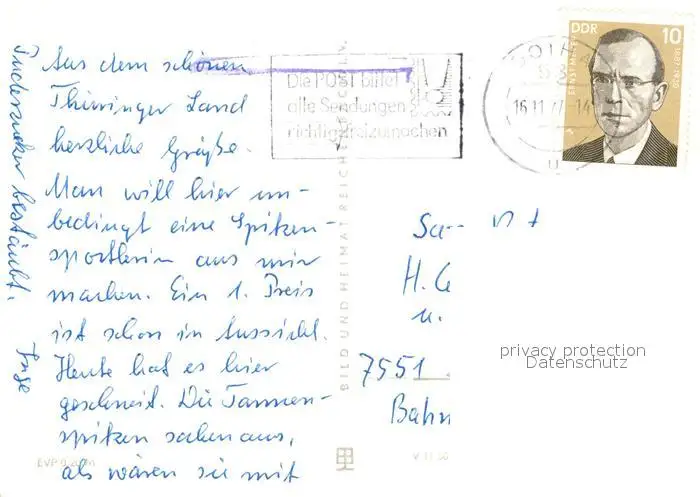 Aus dem schönen
Thüringer Land
herzliche Grüße.
Man will hier un-
bedingt eine Spitzen-
sportlerin aus mir
machen. Ein 1. Preis
ist schon in Aussicht.
Heute hat es hier
geschneit. Die Tannen-
spitzen sahen aus,
als wären sie mit
Puderzucker bestäubt.
Inge
Die POST bittet
alle Sendungen
richtig freizumachen
GOTHA
16.11.77-14
DDR 10
ERNST
1887-1930
BILD UND HEIMAT REICHENBACH I. V.
H. G
u.
7551
Bahn
privacy protection
Datenschutz
EVP
V 11 50